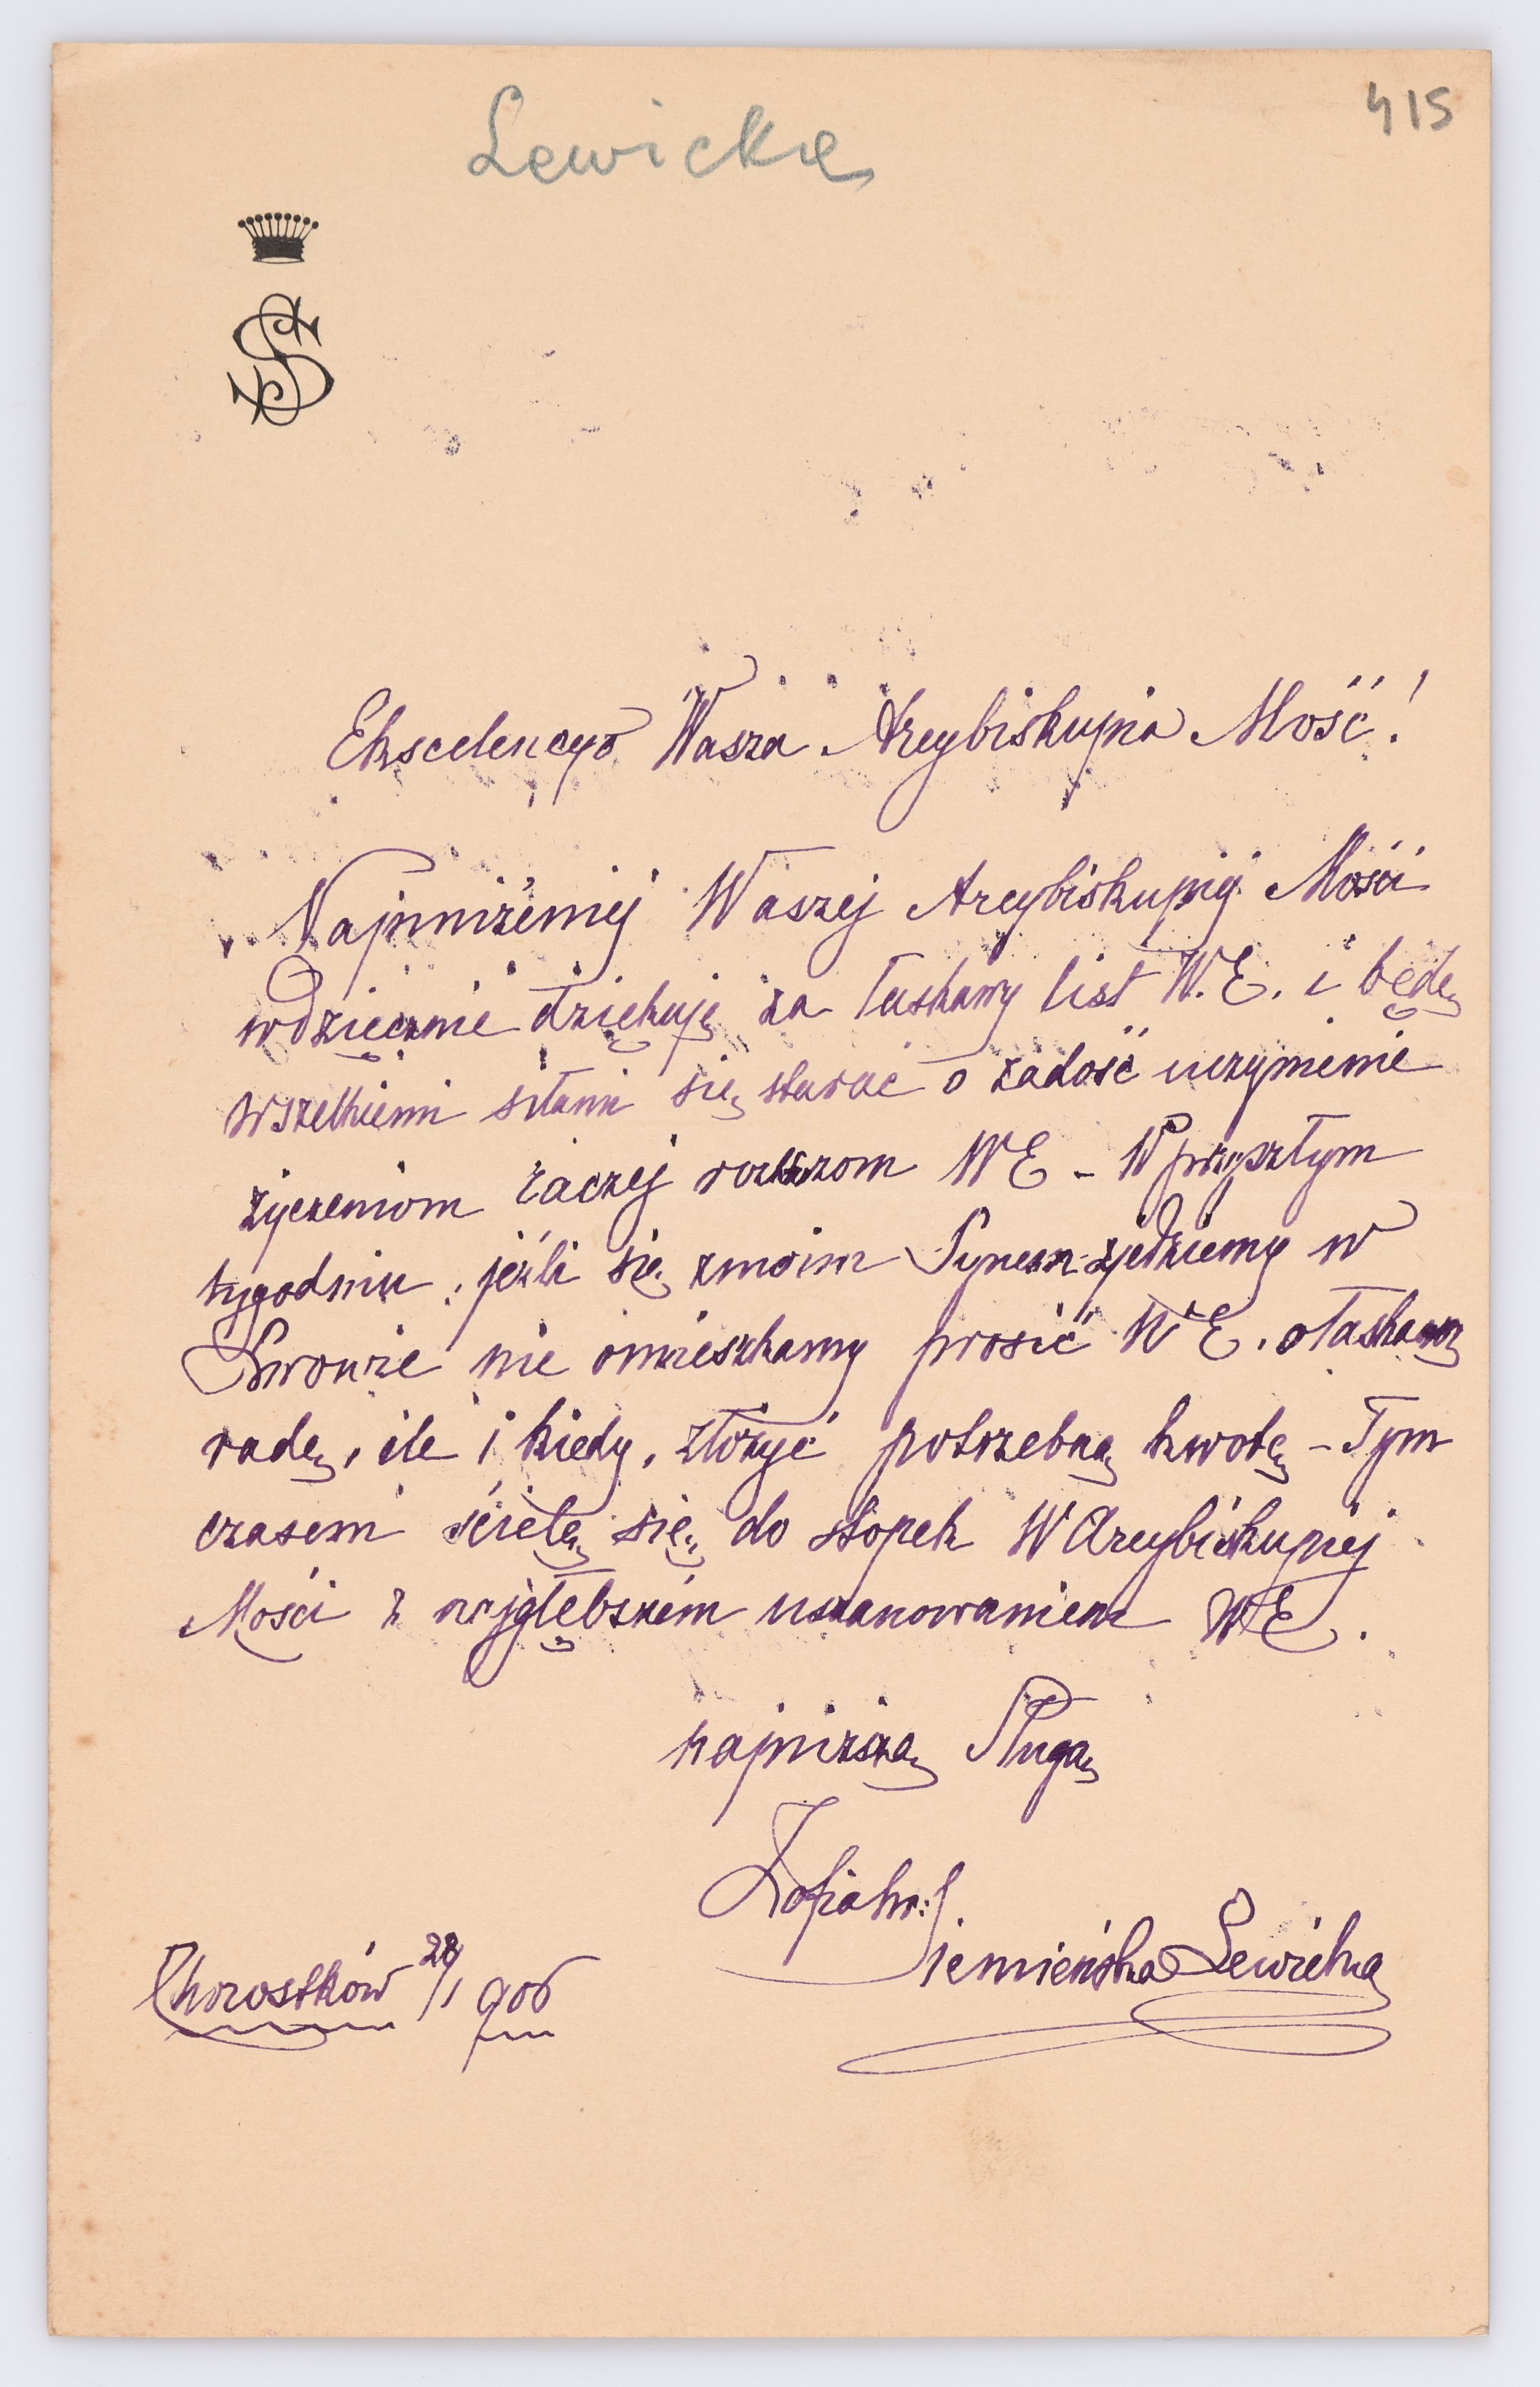 415
Lewickie
Ekscelencyo Wasza Arcybiskupia Mość!
Najuniżeniej Waszej Arcybiskupiej Mości
wdzięcznie dziękuję za łaskawy list W.E. i będę
wszelkiemi siłami się starać o zadość uczynienie
życzeniom raczej rozkazom WE - W przyszłym
tygodniu, jeźli się z moim Synem zjedziemy w
Lwowie nie omieszkamy prosić WE. o łaskawą
radę, ile i kiedy, złożyć potrzebną kwotę - Tym
czasem ścielę się do stopek W Arcybiskupiej
Mości z najgłębszém uszanowaniem WE.
najniższą Sługą
Zofia hr:
Siemieńska Lewicka
Chorostków 28/1 906